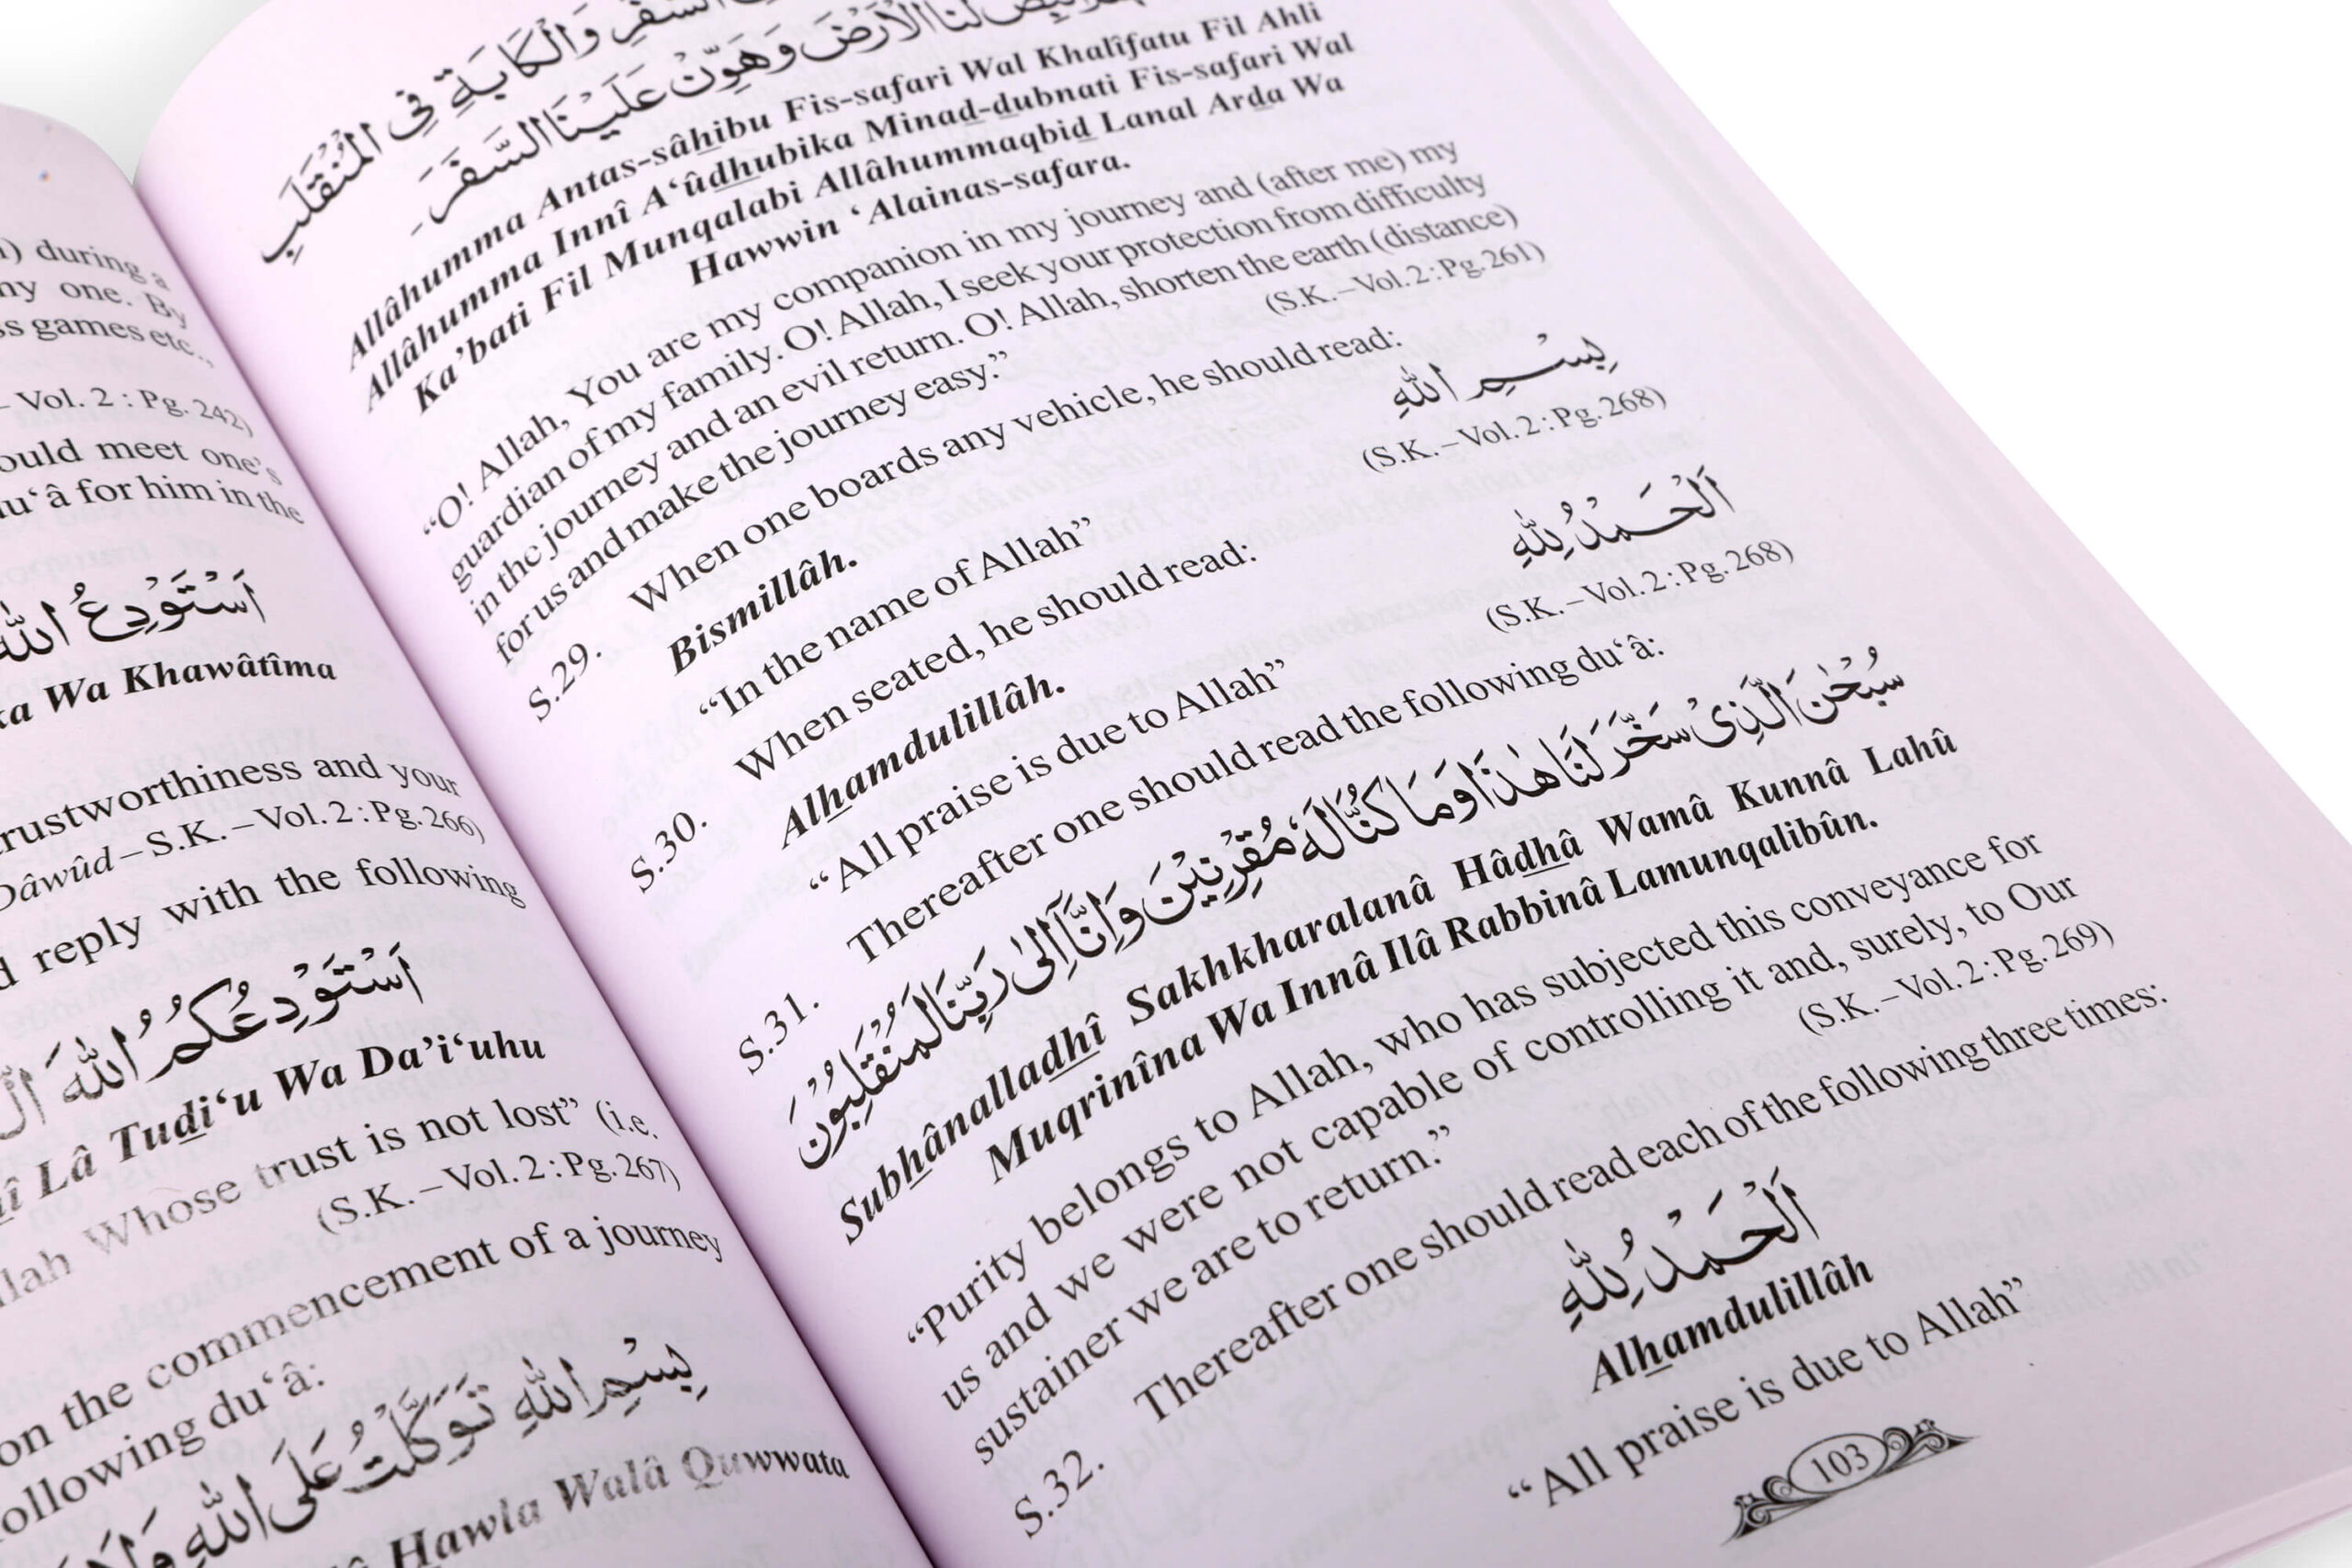 during a
one. By
games etc.,
– Vol. 2 : Pg. 242)
meet one's
for him in the
اَسْتَوْدِعُ اللّٰهَ
Wa Khawâtîma
and your
Dâwûd – S.K. – Vol. 2 : Pg. 266)
reply with the following
اَسْتَوْدِعُكُمُ اللّٰهَ
Lâ Tudi‘u Wa Da’i‘uhu
Whose trust is not lost” (i.e.
(S.K. – Vol. 2 : Pg. 267)
on the commencement of a journey
following du‘â:
بِسْمِ اللّٰهِ تَوَكَّلْتُ عَلَى اللّٰهِ
Hawla Walâ Quwwata
السَّفَرِ وَالْكَابَةِ فِى الْمُنْقَلَبِ
لَنَا الْاَرْضَ وَهَوِّنْ عَلَيْنَا السَّفَرَ
Allâhumma Antas-sâhibu Fis-safari Wal Khalîfatu Fil Ahli
Allâhumma Innî A‘ûdhubika Minad-dubnati Fis-safari Wal
Ka’bati Fil Munqalabi Allâhummaqbid Lanal Arda Wa
Hawwin ‘Alainas-safara.
“O! Allah, You are my companion in my journey and (after me) my
guardian of my family. O! Allah, I seek your protection from difficulty
in the journey and an evil return. O! Allah, shorten the earth (distance)
for us and make the journey easy.”
(S.K. – Vol. 2 : Pg. 261)
S.29. When one boards any vehicle, he should read:
بِسْمِ اللّٰهِ
Bismillâh.
“In the name of Allah”
(S.K. – Vol. 2 : Pg. 268)
S.30. When seated, he should read:
اَلْحَمْدُ لِلّٰهِ
Alhamdulillâh.
“All praise is due to Allah”
(S.K. – Vol. 2 : Pg. 268)
S.31. Thereafter one should read the following du‘â:
سُبْحٰنَ الَّذِىْ سَخَّرَ لَنَا هٰذَا وَمَا كُنَّا لَهٗ مُقْرِنِيْنَ وَاِنَّا اِلٰى رَبِّنَا لَمُنْقَلِبُوْنَ
Subhânalladhî Sakhkharalanâ Hâdhâ Wamâ Kunnâ Lahû
Muqrinîna Wa Innâ Ilâ Rabbinâ Lamunqalibûn.
“Purity belongs to Allah, who has subjected this conveyance for
us and we were not capable of controlling it and, surely, to Our
sustainer we are to return.”
(S.K. – Vol. 2 : Pg. 269)
S.32. Thereafter one should read each of the following three times:
اَلْحَمْدُ لِلّٰهِ
Alhamdulillâh
“All praise is due to Allah”
103